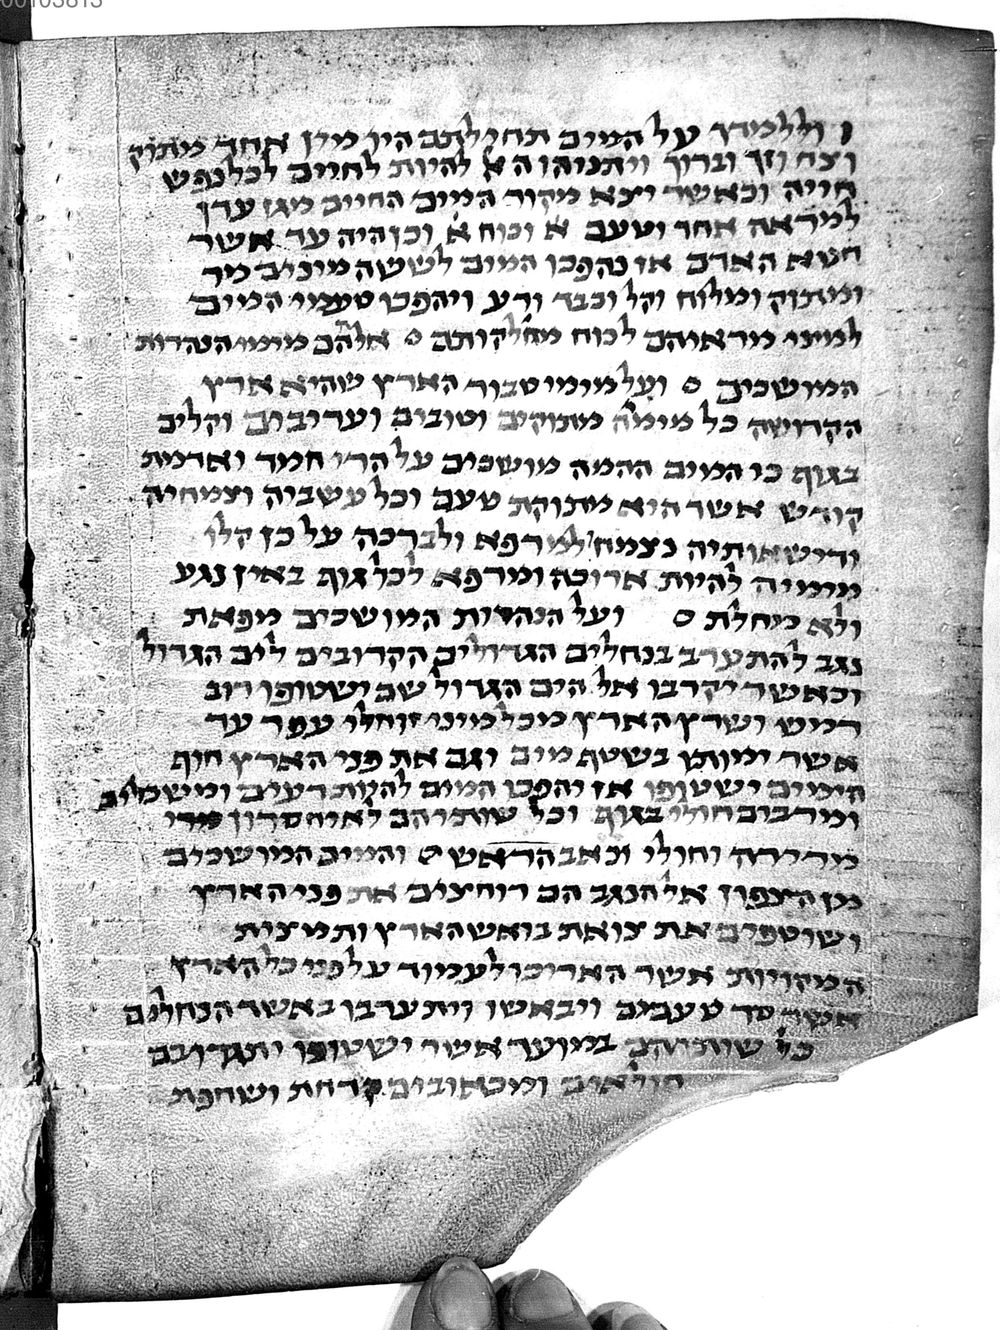 00103813
וללמדך על המים תחילתם היו מין אחד מתוק
וצח וזך וברור ויתניהו הא להיות לחיים לכל נפש
חייה וכאשר יצא מקור המים החיים מגן עדן
למראה אחד וטעם א וכוח א וכן היה עד אשר
חטא האדם אז נהפכו המים לששה מינים מר
ומתוק ומלוח וקל וכבד ורע ויהפכו טעמי המים
למיני מראיהם לכוח מחלקותם אלהם מימי הנהרות
המושכים ועל מימי טבור הארץ שהיא ארץ
הקדושה כל מימיה מתוקים וטובים ועריבים וקלים
בגוף כי המים ההמה מושכים על הרי חמד ואדמת
קודש אשר היא מתוקת טעם וכל עשביה וצמחיה
ודישאותיה נצמח למרפא ולברכה על כן קלו
מימיה להיות ארוכה ומרפא לכל גוף באין נגע
ולא מחלת ועל הנהרות המושכים מפאת
נגב להתערב בנחלים הגדולים הקרובים לים הגדול
וכאשר יקרבו אל הים הגדול שם ישטופו רוב
רמש ושרץ הארץ מכל מיני זוחלי עפר עד
אשר ימותו בשטף מים וגם את פני הארץ חוף
הימים ישטופו אז יהפכו המים להיות רעים ומשמילים
ומרבים חולי בגוף וכל שותיהם לא יחסרון מדי
מרירה וחולי וכאב הראש והמים המושכים
מן הצפון אל הנגב הם רוחצים את פני הארץ
ושוטפים את צואת בואש הארץ ותמצית
המקויות אשר האריכו לעמוד על פני כל הארץ
אשר סר טעמם ויבאשו ויתערבו באשר הנחלים
כל שותיהם במועד אשר ישטופו יתגדרו בם
חולאים ומכאובים קדחת ושחפת